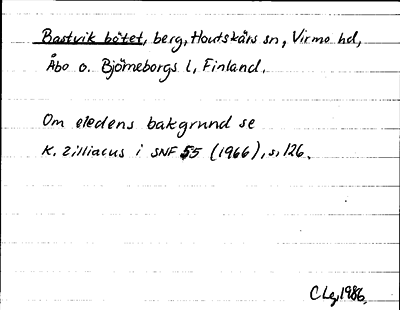 Bastvik bötet, berg, Houtskärs sn, Virmo hd,
Åbo o. Björneborgs l, Finland.
Om eledens bakgrund se
K. Zilliacus i SNF 55 (1966), s, 126.
CLg, 1986.